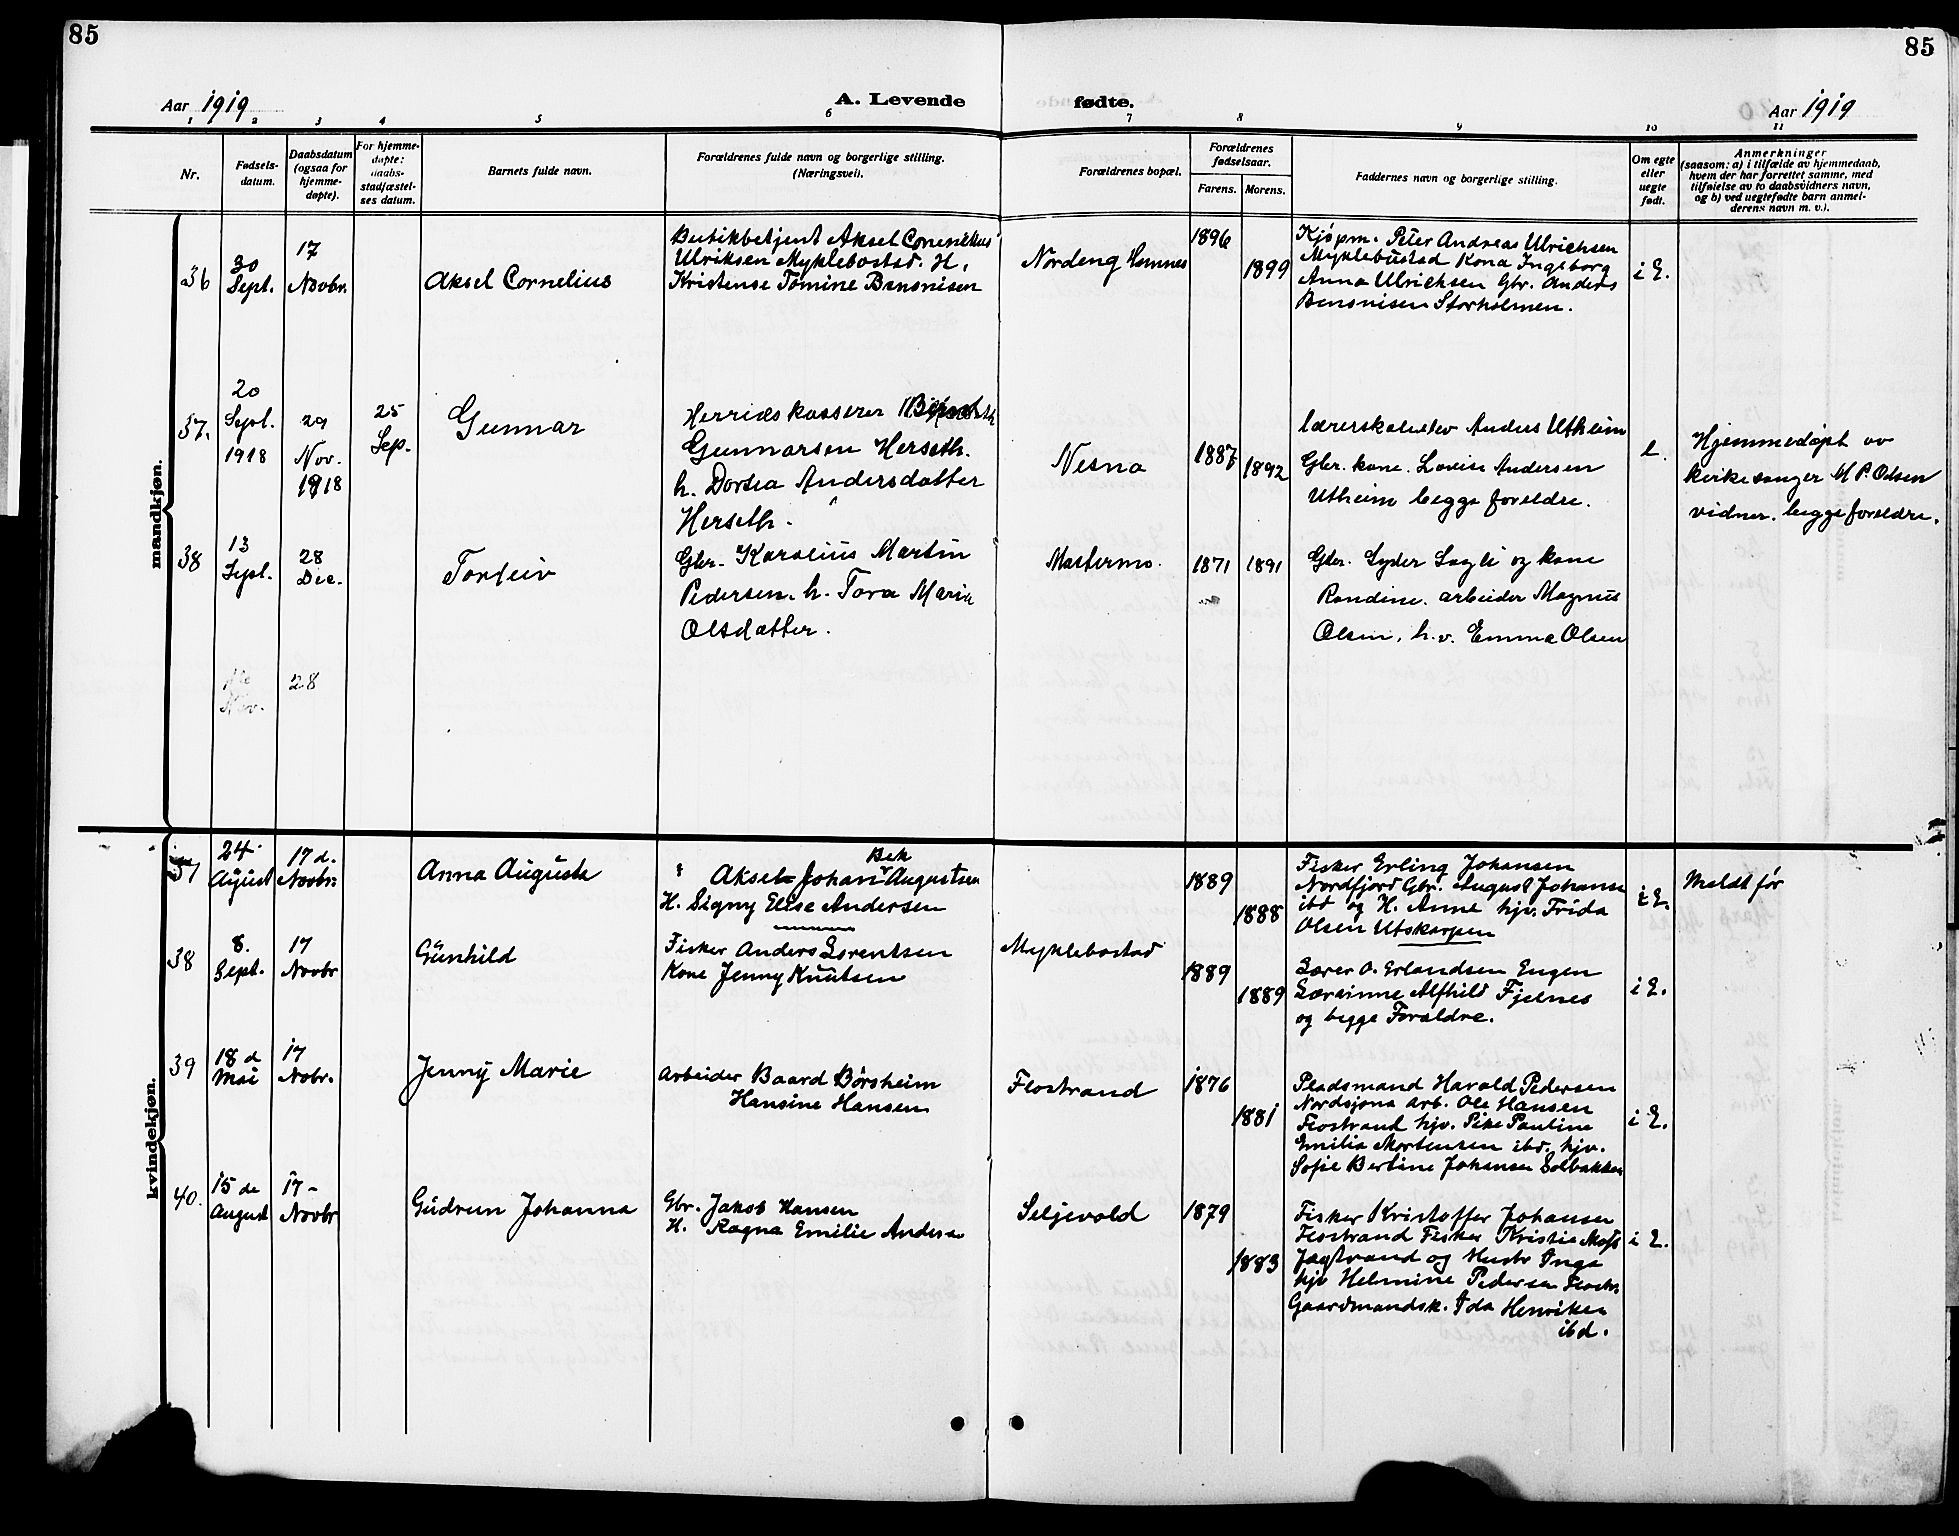 85
85
Aar 1919
A. Levende
fødte.
Aar 1919
1 2 3 4 5 6 7 8 9 10 11
Nr.
Fødsels-
datum.
Daabsdatum
(ogsaa for
hjemme-
døpte).
For hjemme-
døpte:
daabs-
stadfæstel-
ses datum.
Barnets fulde navn.
Forældrenes fulde navn og borgerlige stilling.
(Næringsvei).
Forældrenes bopæl.
Forældrenes
fødselsaar.
Farens. Morens.
Faddernes navn og borgerlige stilling.
Om egte
eller
uegte
født.
Anmerkninger
(saasom: a) i tilfælde av hjemmedaab,
hvem der har forrettet samme, med
tilføielse av to daabsvidners navn,
og b) ved uegtefødte barn anmel-
derens navn m. v.).
mandkjøn.
36
30
Sept.
17
Novbr.
Aksel Cornelius
Butikbetjent Aksel Cornelius
Ulriksen Myklebostad. H.
Kristense Tomine Bensnisen
Nordeng Hemnes
1896
1899
Kjøpm. Peter Andreas Ulrichsen
Myklebustad Kona Ingeborg
Anna Ulrichsen Gbr. Anders
Bensnisen Storholmen.
i E.
37.
20
Sept.
1918
29
Nov.
1918
25
Sep.
Gunnar
Herredskasserer
Gunnarsen Herseth.
h. Dortea Andersdatter
Herseth.
Nesna
1887
1892
lærerskoleelev Anders Utheim
Gbr. kone. Lovise Andersen
Utheim begge foreldre.
e.
Hjemmedøpt av
kirkesanger M P. Olsen
vidner. begge foreldre.
38
13
Sept.
28
Dec.
Torleiv
Gbr. Karolius Martin
Pedersen. h. Tora Marie
Olsdatter.
Mastermo.
1871
1891
Gbr. Syder Sagli og kone
Randine. arbeider Magnus
Olsen, h.v. Emma Olsen
Nov.
28
kvindekjøn.
37
24
August
17 d.
Novbr.
Anna Augusta
Bek
Aksel Johan Augustsen
H. Signy Elise Andersen
1889
1888
Fisker Erling Johansen
Nordfjord Gbr. August Johanse
ibd og H. Anne hjv. Frida
Olsen Utskarpen
i E.
Meldt før
38
8.
Sept.
17
Novbr
Gunhild
Fisker Anders Lorentsen
Kone Jenny Knutsen
Myklebostad
1889
1889
Lærer O. Erlandsen Engen
Lærerinne Alfhild Fjelnes
og begge Forældre.
i E.
39
18 d
Mai
17
Nobr.
Jenny Marie
Arbeider Baard Børsheim
Hansine Hansen
Flostrand
1876
1881
Pladsmand Harald Pedersen
Nordsjona arb. Ole Hansen
Flostrand hjv. Pike Pauline
Emilie Mortensen ibd. hjv.
Sofie Bertine Johansen Solbakken
i E.
40.
15 de
August
17-
Novbr
Gudrun Johanna
Gbr. Jakob Hansen
H. Ragna Emilie Andersen
Seljevold
1879
1883
Fisker Kristoffer Johansen
Flostrand Fisker Kristie
og Hustr Inga
hjv Helmine Pedersen Flostr.
Gaardmandsk. Ida Henriksen
ibd.
i E.